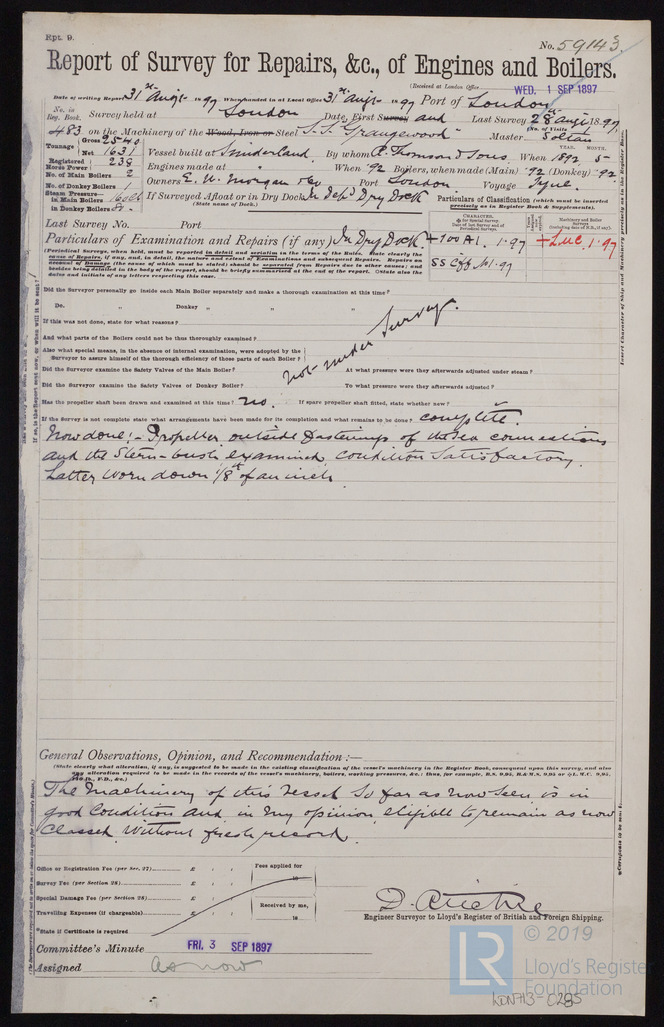 Rpt. 9.
No. 59143
Report of Survey for Repairs, &c., of Engines and Boilers.
(Received at London Office WED. 1 SEP 1897
Date of writing Report 31st Augt 1897 When handed in at Local Office 31st Augt 1897 Port of London
No. in Reg. Book. Survey held at London Date, First Survey and Last Survey 28th Augt 1897
(No. of Visits 1
483 on the Machinery of the Wood, Iron or Steel S.S. "Grangewood" Master
Tonnage Gross 2540
Net 1631
Vessel built at Sunderland By whom R. Thompson & Sons When 1892 5
YEAR. MONTH.
Registered Horse Power 238
Engines made at " When 92 Boilers, when made (Main) 92 (Donkey) 92
No. of Main Boilers 2
No. of Donkey Boilers 1
Owners E. W. Morgan & Co Port London Voyage Tyne
Steam Pressure in Main Boilers 160 lb
in Donkey Boilers
If Surveyed Afloat or in Dry Dock In Dry Dock
(State name of Dock.)
Particulars of Classification (which must be inserted precisely as in Register Book & Supplements).
Last Survey No. Port
CHARACTER.
Particulars of Examination and Repairs (if any) In Dry Dock
+100 A1. 1.97
+LMC. 1.97
SS Cff No1.97
(Periodical Surveys, when held, must be reported in detail and seriatim in the terms of the Rules. State clearly the
cause of Repairs, if any, and, in detail, the nature and extent of Examinations and subsequent Repairs. Repairs on
account of Damage (the cause of which must be stated) should be separated from Repairs due to other causes; and
besides being detailed in the body of the report, should be briefly summarized at the end of the report. State also the
dates and initials of any letters respecting this case.
Did the Surveyor personally go inside each Main Boiler separately and make a thorough examination at this time?
Do. " Donkey " " "
If this was not done, state for what reasons?
And what parts of the Boilers could not be thoroughly examined?
not under Survey.
Also what special means, in the absence of internal examination, were adopted by the
Surveyor to assure himself of the thorough efficiency of those parts of each Boiler?
Did the Surveyor examine the Safety Valves of the Main Boiler? At what pressure were they afterwards adjusted under steam?
Did the Surveyor examine the Safety Valves of Donkey Boiler? To what pressure were they afterwards adjusted?
Has the propeller shaft been drawn and examined at this time? no. If spare propeller shaft fitted, state whether new?
If the Survey is not complete state what arrangements have been made for its completion and what remains to be done? complete.
Now done:- Propeller, outside fastenings of the sea connections
and the Stern-bush examined condition Satisfactory.
Latter worn down 1/8th of an inch
General Observations, Opinion, and Recommendation:—
(State clearly what alteration, if any, is suggested to be made in the existing classification of the vessel's machinery in the Register Book, consequent upon this survey, and also
any alteration required to be made in the records of the vessel's machinery, boilers, working pressures, &c.; thus, for example, B.S. 9,95, B.&M.S. 9,95 or +L.M.C. 9,95,
The Machinery of this vessel so far as now seen is in
good condition and in my opinion eligible to remain as now
Classed, without fresh record.
Office or Registration Fee (per Sec. 27) £ : : Fees applied for
18
Survey Fee (per Section 28) £ : :
Special Damage Fee (per Section 28) £ : : Received by me,
Travelling Expenses (if chargeable) £ : : 18
D. Ritchie
Engineer Surveyor to Lloyd's Register of British and Foreign Shipping.
*State if Certificate is required
Committee's Minute FRI. 3 SEP 1897
Assigned as now
LR © 2019
Lloyd's Register
Foundation
LDN713-0285